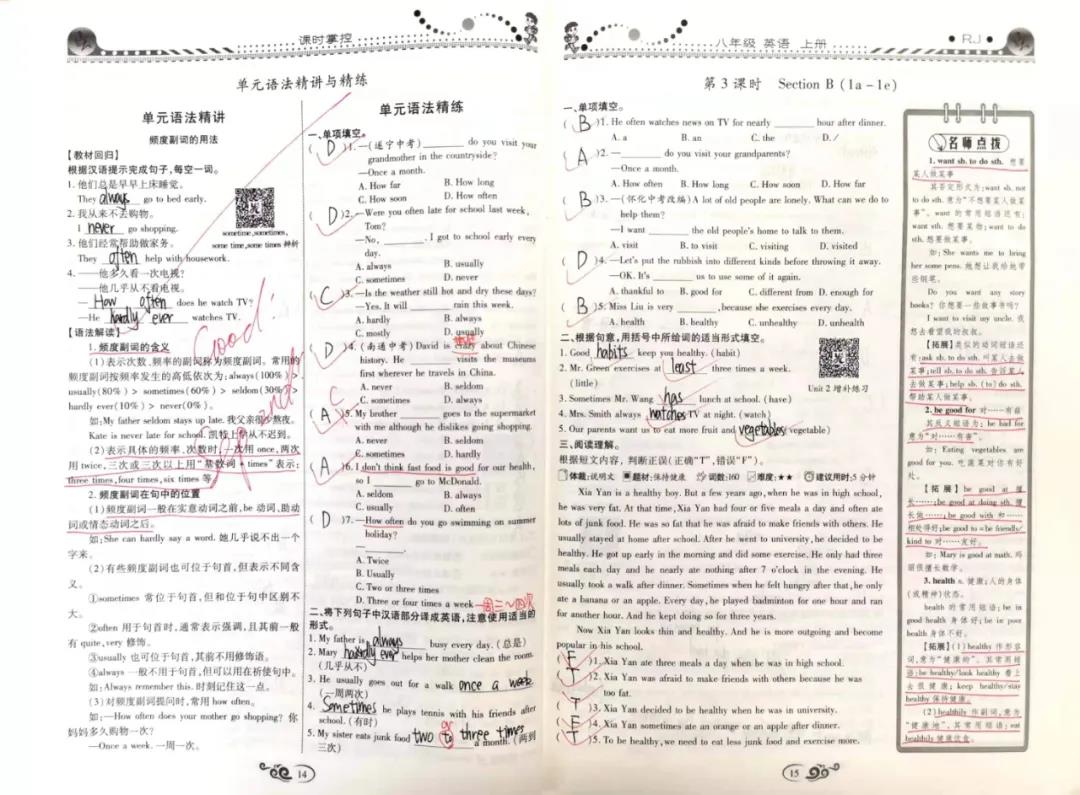 课时掌控
单元语法精讲与精练
单元语法精讲
频度副词的用法
【教材回归】
根据汉语提示完成句子,每空一词。
1. 他们总是早早上床睡觉。
They always go to bed early.
2. 我从来不去购物。
I never go shopping.
3. 他们经常帮助做家务。
They often help with housework.
4. ——他多久看一次电视?
——他几乎从不看电视。
—How often does he watch TV?
—He hardly ever watches TV.
sometime,sometimes,
some time,some times 辨析
【语法解读】
1. 频度副词的含义
(1)表示次数、频率的副词称为频度副词。常用的
频度副词按频率发生的高低依次为:always(100%)>
usually(80%) > sometimes(60%) > seldom(30%) >
hardly ever(10%) > never(0%)。
如:My father seldom stays up late. 我父亲很少熬夜。
Kate is never late for school. 凯特上学从不迟到。
(2)表示具体的频率、次数时,一次用 once,两次
用 twice,三次或三次以上用“基数词+times”表示:
three times,four times,six times 等。
2. 频度副词在句中的位置
(1)频度副词一般在实意动词之前,be 动词、助动
词或情态动词之后。
如:She can hardly say a word. 她几乎说不出一个
字来。
(2)有些频度副词也可位于句首,但表示不同含
义。
①sometimes 常位于句首,但和位于句中区别不
大。
②often 用于句首时,通常表示强调,且其前一般
有 quite,very 修饰。
③usually 也可位于句首,其前不用修饰语。
④always 一般不用于句首,但可以用在祈使句中。
如:Always remember this. 时刻记住这一点。
(3)对频度副词提问时,常用 how often。
如:—How often does your mother go shopping? 你
妈妈多久购物一次?
—Once a week. 一周一次。
Good!
单元语法精练
一、单项填空。
( D )1. —(遂宁中考) ______ do you visit your
grandmother in the countryside?
—Once a month.
A. How far B. How long
C. How soon D. How often
( D )2. —Were you often late for school last week,
Tom?
—No, ______. I got to school early every
day.
A. always B. usually
C. sometimes D. never
( C )3. —Is the weather still hot and dry these days?
—Yes. It will ______ rain this week.
A. hardly B. always
C. mostly D. usually
( D )4. (南通中考) David is crazy about Chinese
history. He ______ visits the museums
first wherever he travels in China.
A. never B. seldom
C. sometimes D. always
C
( A )5. My brother ______ goes to the supermarket
with me although he dislikes going shopping.
A. never B. seldom
C. sometimes D. hardly
( A )6. I don't think fast food is good for our health,
so I ______ go to McDonald.
A. seldom B. always
C. usually D. often
( D )7. —How often do you go swimming on summer
holiday?
—______.
A. Twice
B. Usually
C. Two or three times
D. Three or four times a week 一周三~四次
二、将下列句子中汉语部分译成英语,注意使用适当的
形式。
1. My father is always busy every day. (总是)
2. Mary hardly ever helps her mother clean the room.
(几乎从不)
3. He usually goes out for a walk once a week.
(一周两次)
4. Sometimes he plays tennis with his friends after
school. (有时)
5. My sister eats junk food two to three times a month. (两到
三次)
or
14
八年级 英语 上册
RJ
第 3 课时 Section B (1a-1e)
一、单项填空。
( B )1. He often watches news on TV for nearly ______ hour after dinner.
A. a B. an C. the D. /
( A )2. —______ do you visit your grandparents?
—Once a month.
A. How often B. How long C. How soon D. How far
( B )3. —(怀化中考改编) A lot of old people are lonely. What can we do to
help them?
—I want ______ the old people's home to talk to them.
A. visit B. to visit C. visiting D. visited
( D )4. —Let's put the rubbish into different kinds before throwing it away.
—OK. It's ______ us to use some of it again.
A. thankful to B. good for C. different from D. enough for
( B )5. Miss Liu is very ______,because she exercises every day.
A. health B. healthy C. unhealthy D. unhealth
二、根据句意,用括号中所给词的适当形式填空。
1. Good habits keep you healthy. (habit)
2. Mr. Green exercises at least three times a week.
(little)
3. Sometimes Mr. Wang has lunch at school. (have)
4. Mrs. Smith always watches TV at night. (watch)
5. Our parents want us to eat more fruit and vegetables. (vegetable)
Unit 2 增补练习
三、阅读理解。
根据短文内容,判断正误(正确“T”,错误“F”)。
体裁:说明文 题材:保持健康 词数:160 难度:★★ 建议用时:5 分钟
Xia Yan is a healthy boy. But a few years ago, when he was in high school,
he was very fat. At that time,Xia Yan had four or five meals a day and often ate
lots of junk food. He was so fat that he was afraid to make friends with others. He
usually stayed at home after school. After he went to university,he decided to be
healthy. He got up early in the morning and did some exercise. He only had three
meals each day and he nearly ate nothing after 7 o'clock in the evening. He
usually took a walk after dinner. Sometimes when he felt hungry after that,he only
ate a banana or an apple. Every day, he played badminton for one hour and ran
for another hour. And he kept doing so for three years.
Now Xia Yan looks thin and healthy. And he is more outgoing and become
popular in his school.
( F )1. Xia Yan ate three meals a day when he was in high school.
( T )2. Xia Yan was afraid to make friends with others because he was
too fat.
( T )3. Xia Yan decided to be healthy when he was in university.
( F )4. Xia Yan sometimes ate an orange or an apple after dinner.
( T )5. To be healthy,we need to eat less junk food and exercise more.
名师点拨
1. want sb. to do sth. 想要
某人做某事
其否定形式为:want sb. not
to do sth. 意为“不想要某人做某
事”。want 的常用短语还有:
want sth. 想要某物;want to do
sth. 想要做某事。
如: She wants me to bring
her some pens. 她想让我给她带
些钢笔。
Do you want any story
books? 你想要一些故事书吗?
I want to visit my uncle. 我
想去看望我的叔叔。
【拓展】类似的动词短语还
有:ask sb. to do sth. 叫某人去做
某事;tell sb. to do sth. 告诉某人
去做某事;help sb. (to) do sth.
帮助某人做某事。
2. be good for 对……有益
其反义短语为: be bad for
意为“对……有害”。
如: Eating vegetables are
good for you. 吃蔬菜对你有好
处。
【拓展】 be good at 擅
长……;be good at doing sth. 擅
长做……;be good with 和……
相处得好;be good to=be friendly/
kind to 对……友好。
如: Mary is good at math. 玛
丽很擅长数学。
3. health n. 健康;人的身体
(或精神)状态。
health 的常用短语:be in
good health 身体好;be in poor
health 身体不好。
【拓展】(1)healthy 作形容
词,意为“健康的”。其常用短
语:be healthy/look healthy 看上
去很健康; keep healthy/stay
healthy 保持健康。
(2)healthily 作副词,意为
“健康地”,其常用短语:eat
healthily 健康饮食。
15